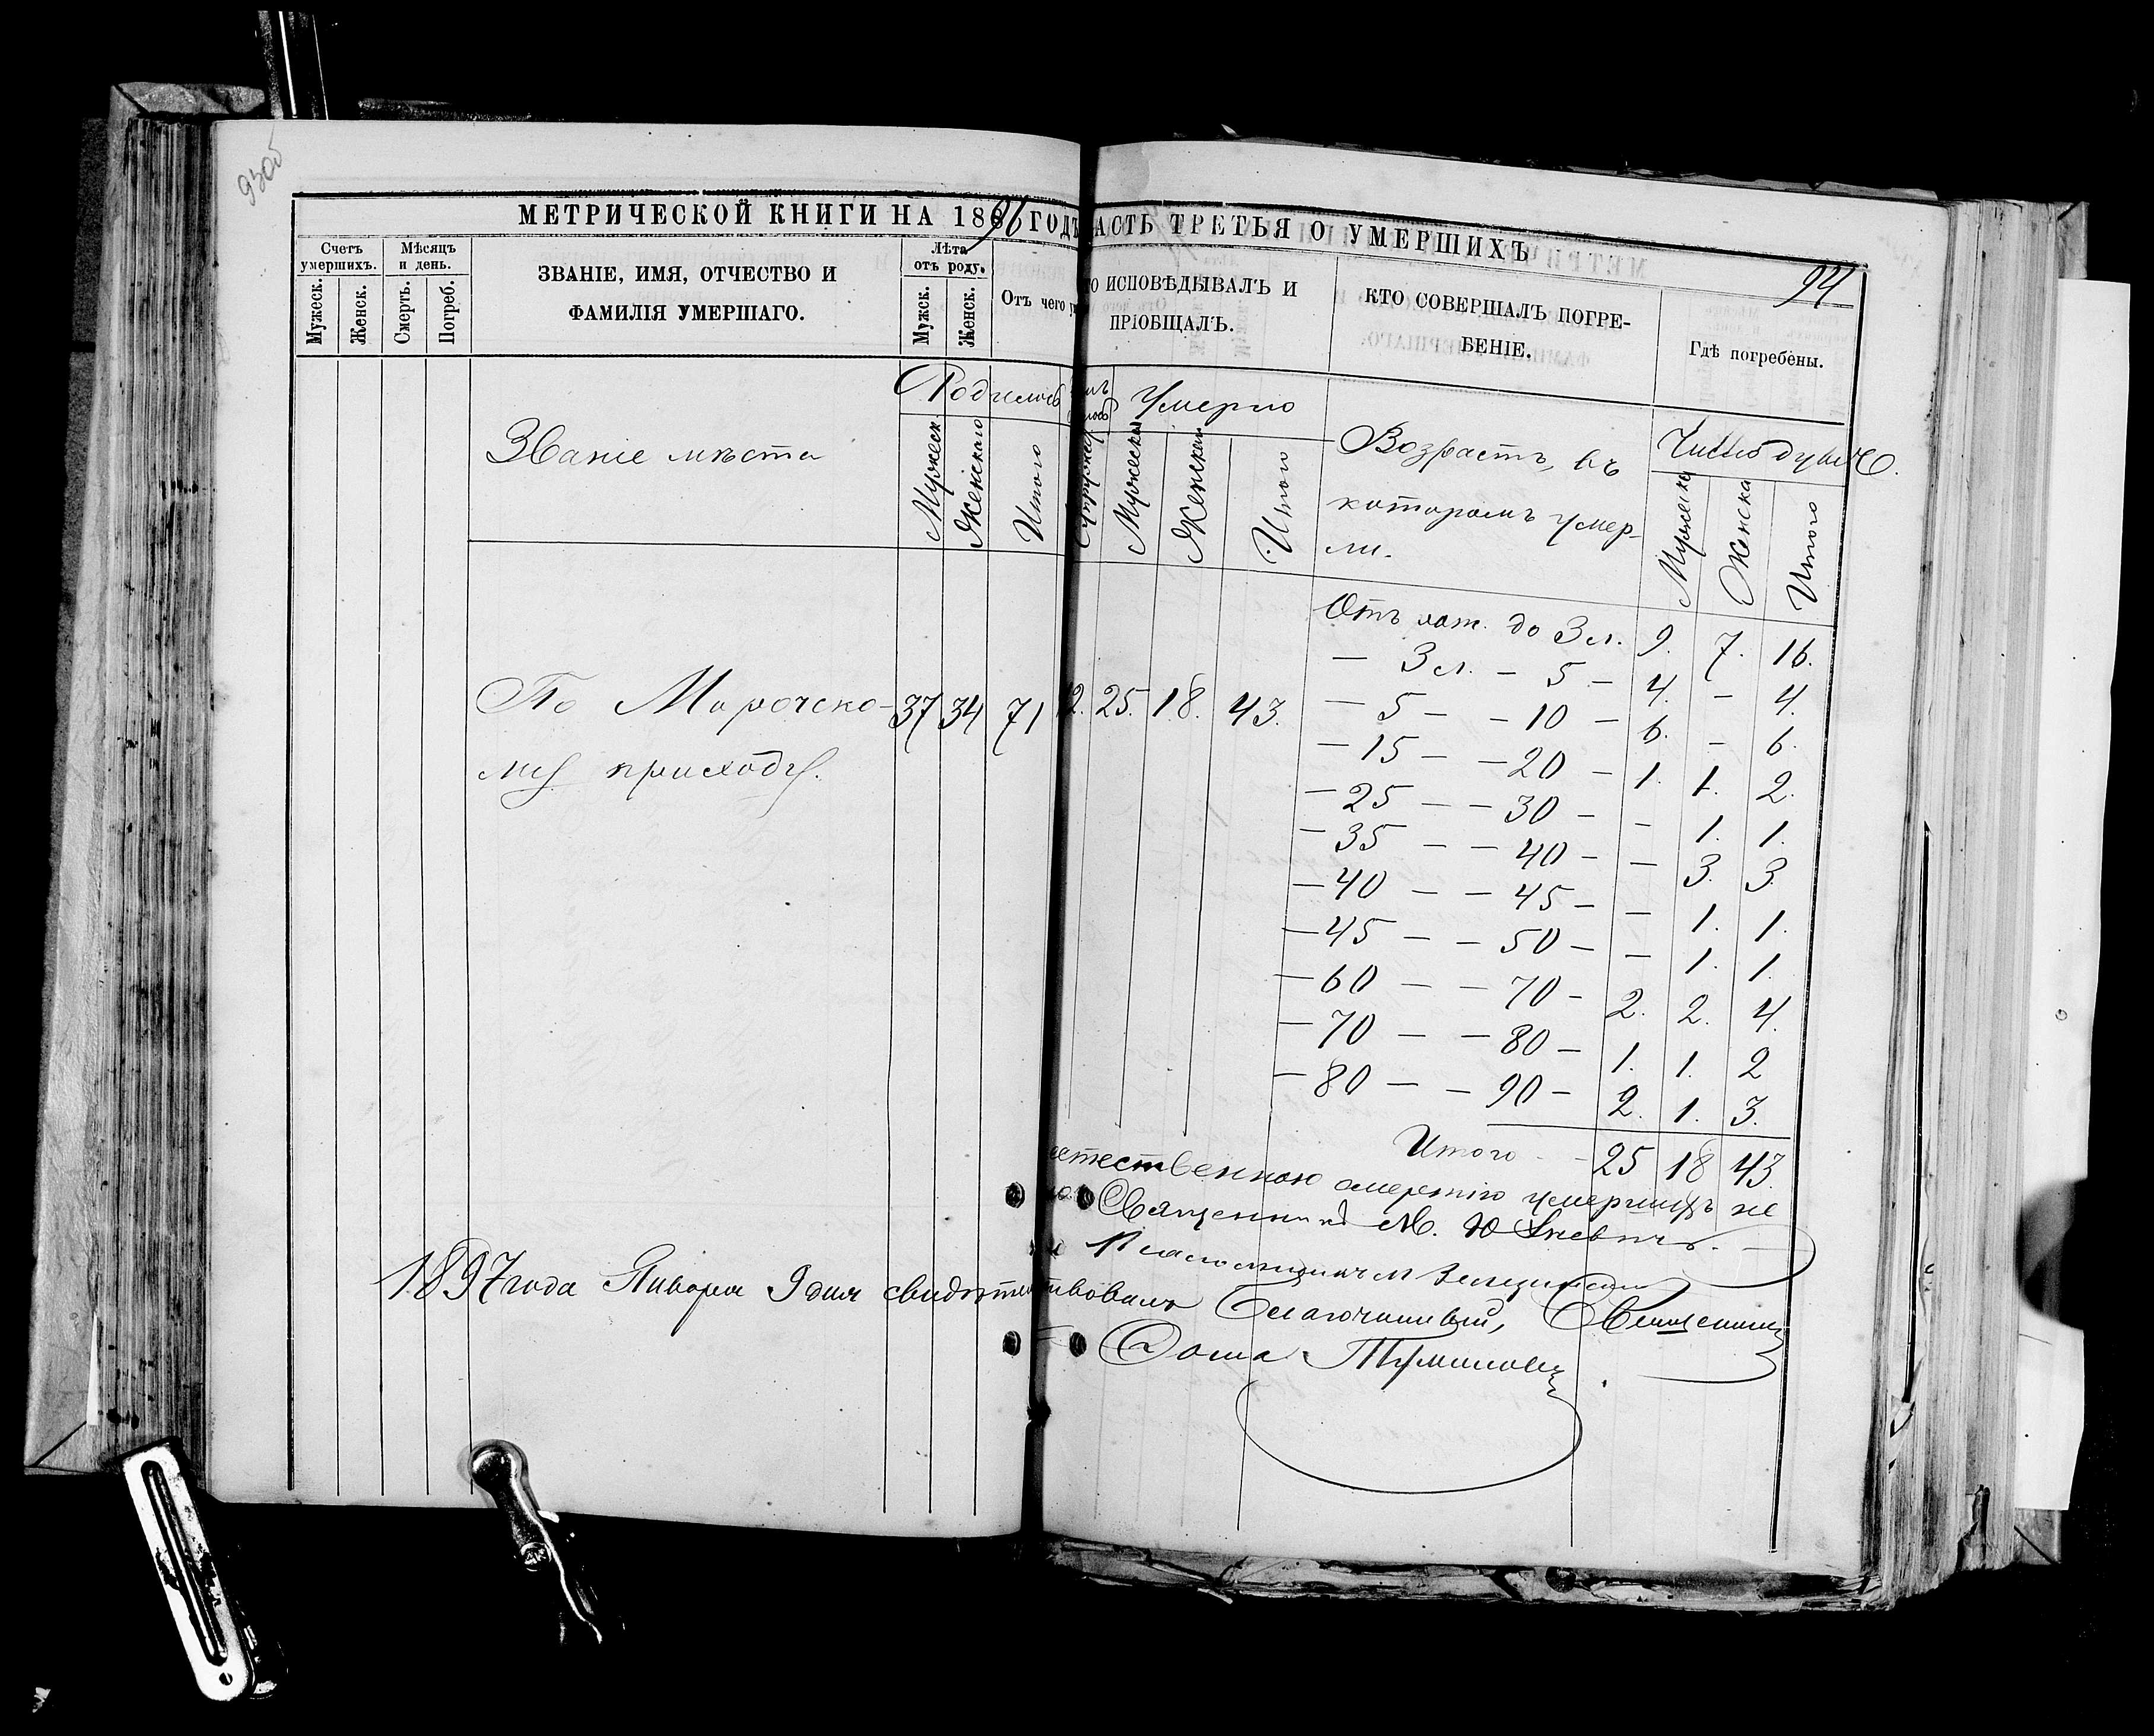 93об
МЕТРИЧЕСКОЙ КНИГИ НА 1896 ГОДЪ
АСТЬ ТРЕТЬЯ О УМЕРШИХЪ
94
Счетъ умершихъ.
Мужеск.
Женск.
Мѣсяцъ и день.
Смерть.
Погреб.
ЗВАНІЕ, ИМЯ, ОТЧЕСТВО И
ФАМИЛІЯ УМЕРШАГО.
Лѣта отъ роду.
Мужск.
Женск.
Отъ чего
ИСПОВѢДЫВАЛЪ И
ПРІОБЩАЛЪ.
КТО СОВЕРШАЛЪ ПОГРЕ-
БЕНІЕ.
Гдѣ погребены.
Званіе мѣста
Родилось
Мужеск
Женскаго
Итого
Умерло
Мужеска
Женска
Итого
Возрастъ, въ
которомъ умер-
ли.
Число душъ.
Мужеска
Женска
Итого
По Морочско-
му приходу.
37 34 71 12. 25. 18. 43.
Отъ рож. до 3 л. 9. 7. 16.
— 3 л. — 5 — 4. — 4.
— 5 — — 10 — 6. — 6.
— 15 — — 20 — 1. 1. 2.
— 25 — — 30 — — 1. 1.
— 35 — — 40 — — 3. 3.
— 40 — — 45 — — 1. 1.
— 45 — — 50 — — 1. 1.
— 60 — — 70 — 2. 2. 4.
— 70 — — 80 — 1. 1. 2
— 80 — — 90 — 2. 1. 3.
Итого — 25 18 43.
естественною смертію умершихъ не
Священникъ М.
Псаломщикъ
1897 года Января 9 дня свидѣтельствовалъ Благочинный, Священникъ
Ѳома Тумиловичъ